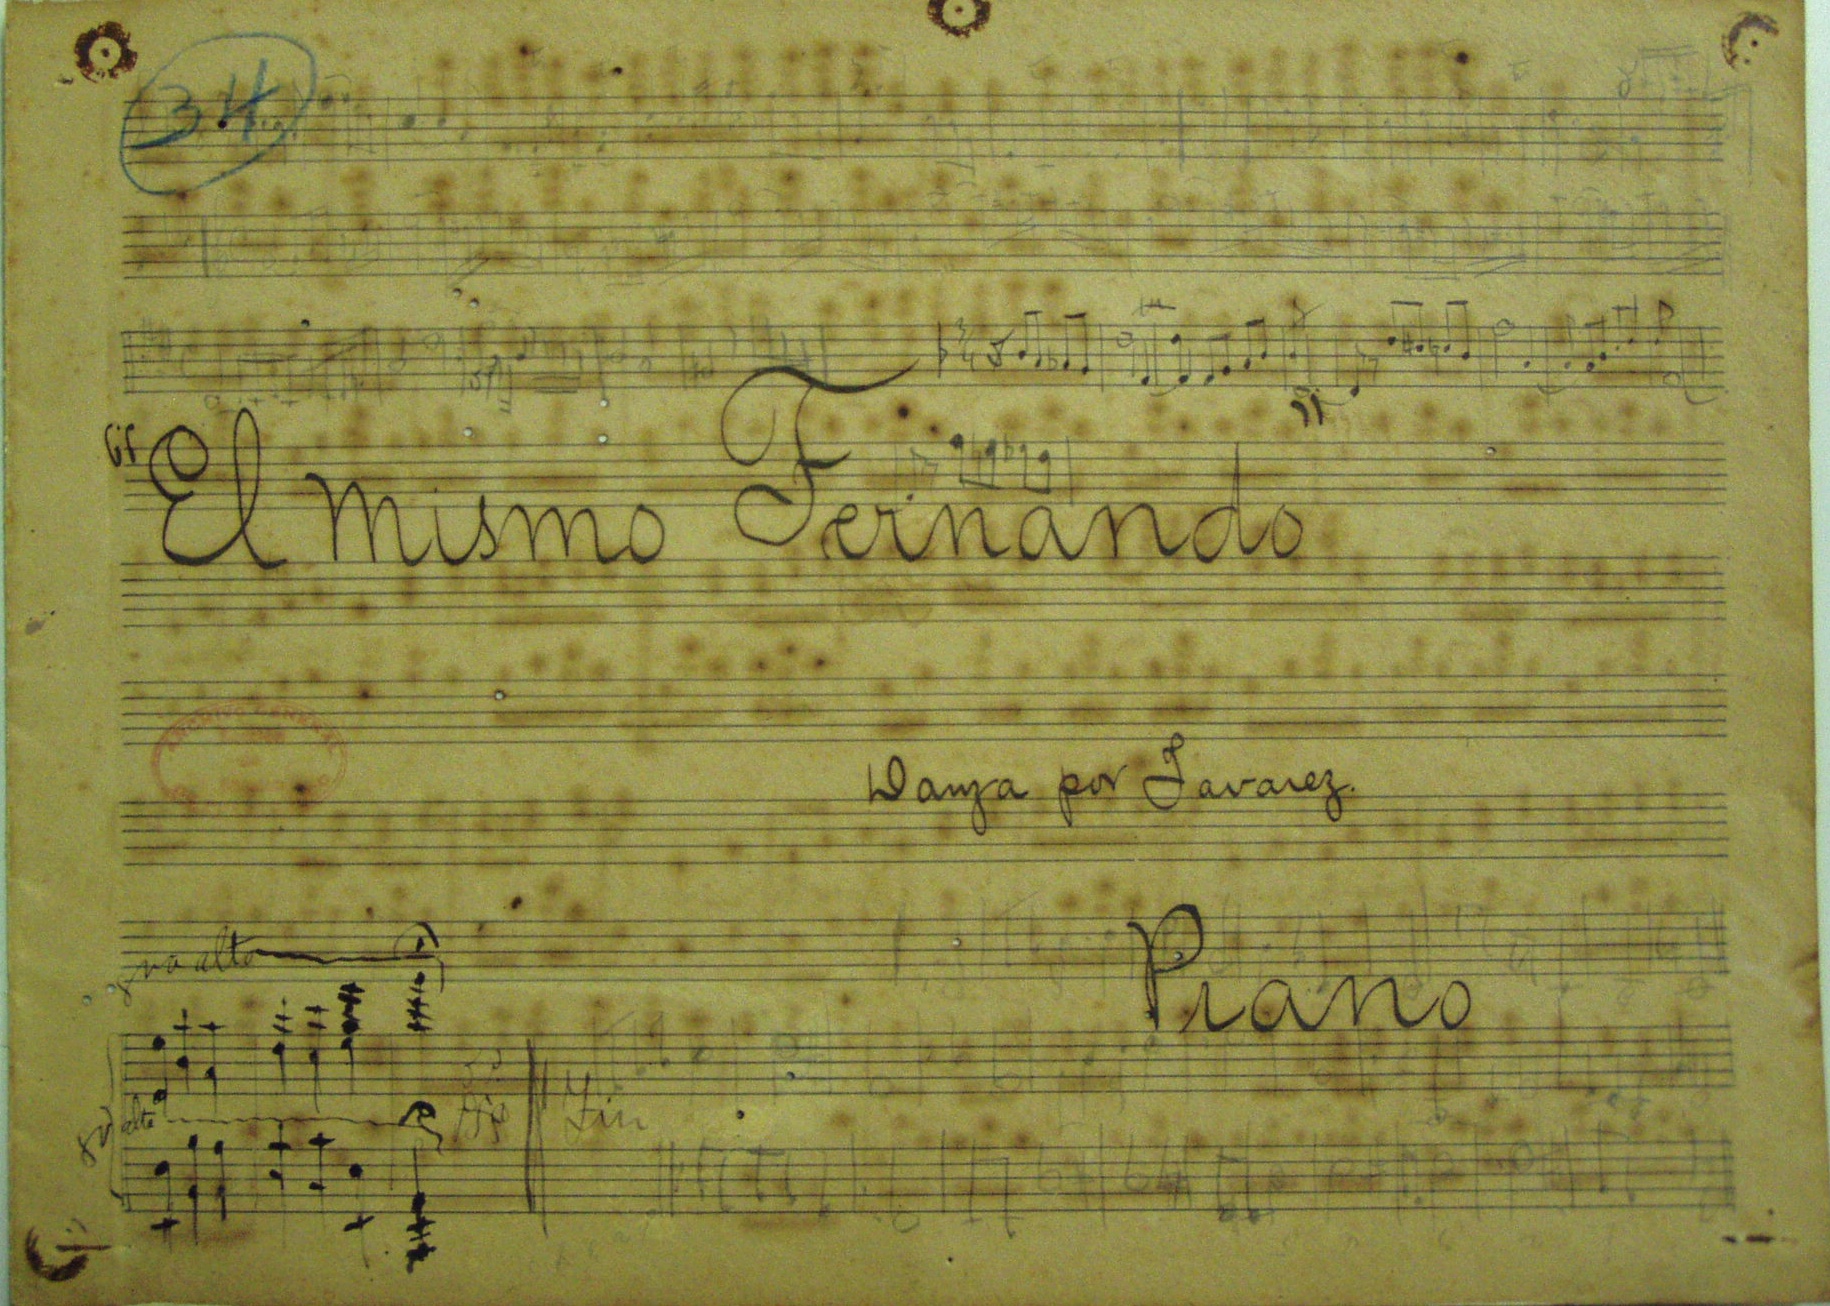 34
"El mismo Fernando"
Danza por Tavarez.
Piano
8va alta
8va alta
Fin